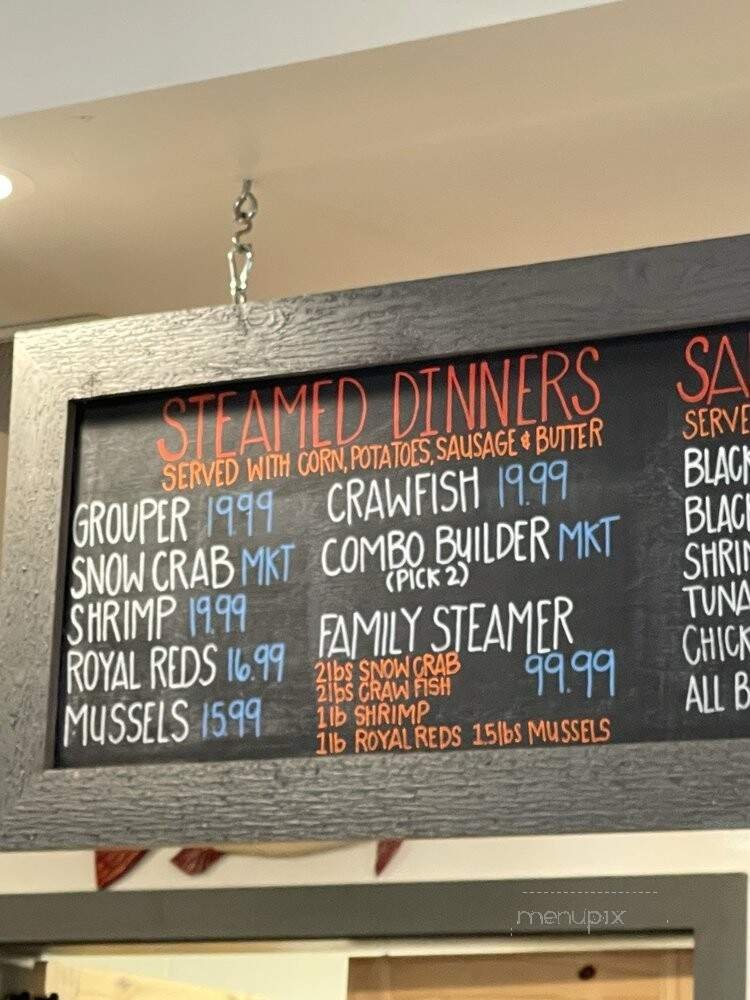 STEAMED DINNERS
SERVED WITH CORN, POTATOES, SAUSAGE & BUTTER
GROUPER 19.99
SNOW CRAB MKT
SHRIMP 19.99
ROYAL REDS 16.99
MUSSELS 15.99
CRAWFISH 19.99
COMBO BUILDER MKT
(PICK 2)
FAMILY STEAMER
99.99
2lbs SNOW CRAB
2lbs CRAW FISH
1lb SHRIMP
1lb ROYAL REDS 1.5lbs MUSSELS
SA
SERVE
BLACK
BLACK
SHRIM
TUNA
CHICK
ALL B
menupix